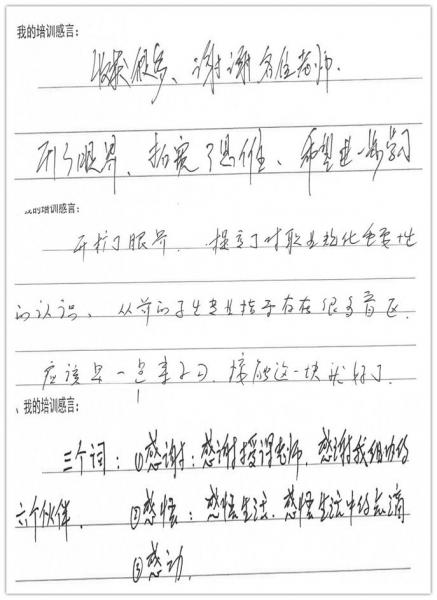 我的培训感言：
收获很多、谢谢各位老师.
开了眼界、拓宽了思维、希望进一步学习
我的培训感言：
开拓了眼界. 提高了对职业规化重要性
的认识、从前的学生专业指导存在很多盲区.
应该早一点来学习. 接触这一块就好了.
、我的培训感言：
三个词：①感谢：感谢授课老师. 感谢我组功的
六个伙伴. ②感悟：感悟生活. 感悟生活中的点滴
③感动.